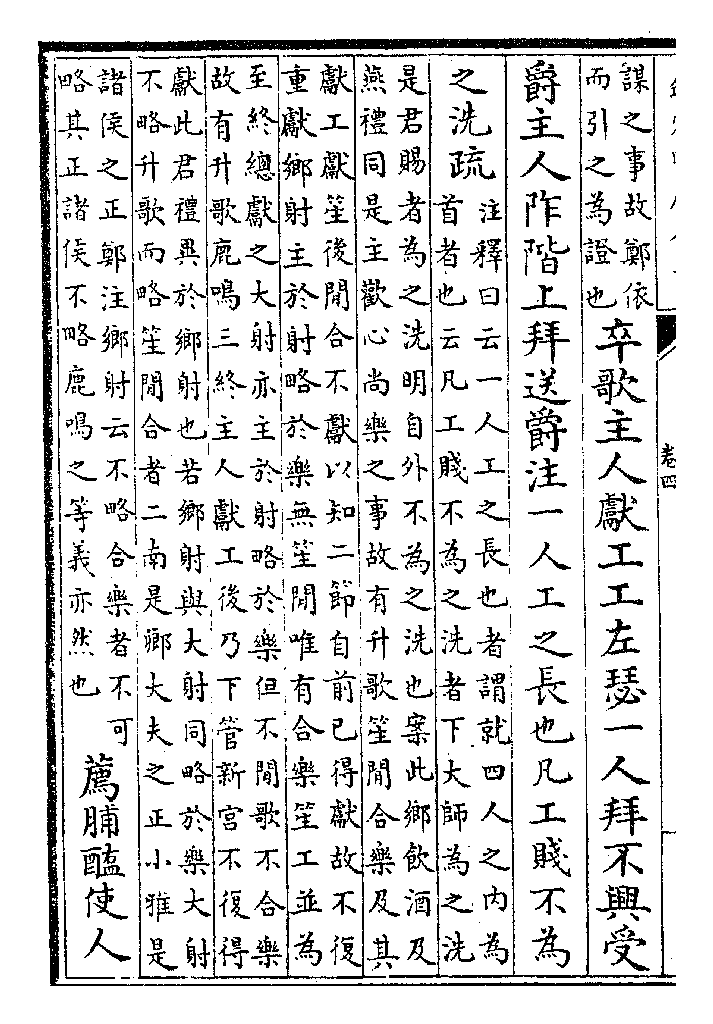 卷四
謀之事故鄭依
而引之為證也
卒歌主人獻工工左瑟一人拜不興受
爵主人阼階上拜送爵注一人工之長也凡工賤不為
之洗疏
注釋曰云一人工之長也者謂就四人之內為
首者也云凡工賤不為之洗者下大師為之洗
是君賜者為之洗明自外不為之洗也案此鄉飲酒及
燕禮同是主歡心尚樂之事故有升歌笙閒合樂及其
獻工獻笙後閒合不獻以知二節自前已得獻故不復
重獻鄉射主於射略於樂無笙閒唯有合樂笙工並為
至終總獻之大射亦主於射略於樂但不閒歌不合樂
故有升歌鹿鳴三終主人獻工後乃下管新宮不復得
獻此君禮異於鄉射也若鄉射與大射同略於樂大射
不略升歌而略笙閒合者二南是鄉大夫之正小雅是
諸侯之正鄭注鄉射云不略合樂者不可
略其正諸侯不略鹿鳴之等義亦然也
薦脯醢使人